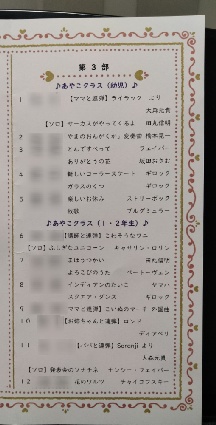 第 3 部
♪あやこクラス（幼児）♪
1 【ママと連弾】ライラック より
大森元貴
【ソロ】サーカスがやってくるよ 田丸信明
2 やまのおんがくか 変奏曲 橋本晃一
3 とんですすって フェイバー
ありがとうの花 坂田おさむ
4 優しいコーラースケート ギロック
ガラスのくつ ギロック
5 楽しいお休み ストリーボッグ
牧歌 ブルグミュラー
♪あやこクラス（1・2年生）♪
6 【講師と連弾】
【ソロ】ふしぎなユニコーン キャサリン・ロリン
7 まほうつかい 田丸信明
よろこびのうた ベートーヴェン
8 インディアンのたいこ ヤマハ
スケアー・ダンス ギロック
9 【ママと連弾】こいぬのマーチ 外国曲
10 【お姉ちゃんと連弾】ロンド
ディアベリ
11 【パパと連弾】Soranji より
大森元貴
【ソロ】発表会のソナチネ ナンシー・フェイバー
12 花のワルツ チャイコフスキー